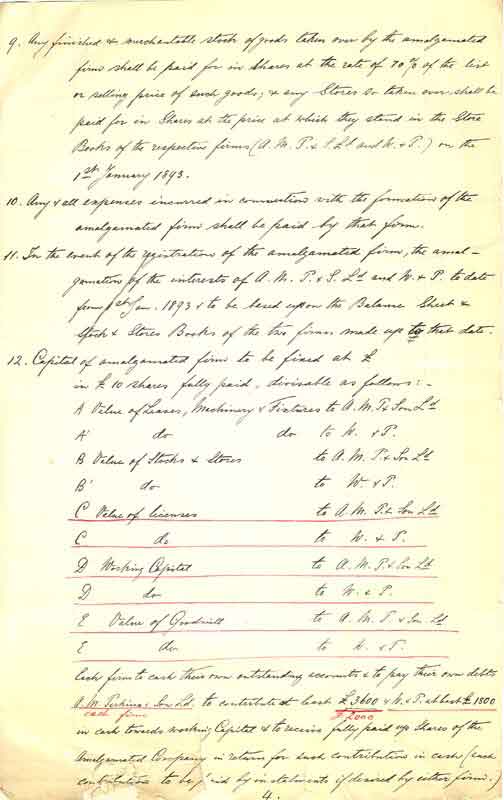 9. Any finished & merchantable stock of goods taken over by the amalgamated
firm shall be paid for in Shares at the rate of 70% of the list
or selling price of such goods; & any Stores so taken over shall be
paid for in Shares at the price at which they stand in the Store
Books of the respective firms (A. M. P. & S. Ld and W. & P.) on the
1st January 1893.
10. Any & all expenses incurred in connection with the formation of the
amalgamated firm shall be paid by that firm.
11. In the event of the registration of the amalgamated firm, the amal-
gamation of the interests of A. M. P. & S. Ld and W. & P. to date
from 1st Jan. 1893 & to be based upon the Balance Sheet &
Stock & Stores Books of the two firms made up to that date.
12. Capital of amalgamated firm to be fixed at £
in £10 shares fully paid, divisable as follows:-
A Value of Leases, Machinery & Fixtures to A. M. P. & Son Ld
A' do do to W. & P.
B Value of Stocks & Stores to A. M. P. & Son Ld
B' do to W. & P.
C Value of licenses to A. M. P. & Son Ld
C do to W. & P.
D Working Capital to A. M. P. & Son Ld
D do to W. & P.
E Value of Goodwill to A. M. P. & Son Ld
E do to W. & P.
Each firm to cash their own outstanding accounts & to pay their own debts
A. M. Perkins & Son Ld. to contribute at least £3600 & W. & P. at least £1800
each firm £2000
in cash towards working Capital & to receive fully paid up Shares of the
Amalgamated Company in return for such contribution in cash (each
contributions to be paid by instalments if desired by either firm.)
4.